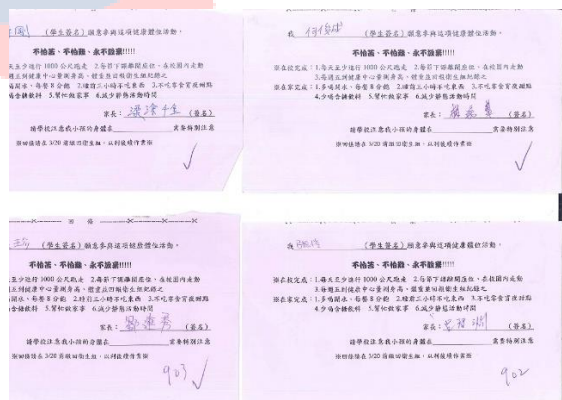 （學生簽名）願意參與這項健康體位活動。
不怕苦、不怕難、永不放棄!!!!!
天至少進行 1000 公尺跑走 2.每節下課離開座位、在校園內走動
3.每週至到健康中心量測身高、體重並回報衛生組紀錄之
喝開水、每餐 8 分飽 2.睡前三小時不吃東西 3.不吃零食宵夜甜點
喝含糖飲料 5.幫忙做家事 6.減少靜態活動時間
家長： （簽名）
請學校注意我小孩的身體在 需要特別注意
※回條請在 3/20 前繳回衛生組，以利後續作業※
我 （學生簽名）願意參與這項健康體位活動。
不怕苦、不怕難、永不放棄!!!!!
※在校完成：1.每天至少進行 1000 公尺跑走 2.每節下課離開座位、在校園內走動
3.每週五到健康中心量測身高、體重並回報衛生組紀錄之
※在家完成：1.多喝開水、每餐 8 分飽 2.睡前三小時不吃東西 3.不吃零食宵夜甜點
4.少喝含糖飲料 5.幫忙做家事 6.減少靜態活動時間
家長： （簽名）
請學校注意我小孩的身體在 需要特別注意
※回條請在 3/20 前繳回衛生組，以利後續作業※
回 條
（學生簽名）願意參與這項健康體位活動。
不怕苦、不怕難、永不放棄!!!!!
至少進行 1000 公尺跑走 2.每節下課離開座位、在校園內走動
每週五到健康中心量測身高、體重並回報衛生組紀錄之
開水、每餐 8 分飽 2.睡前三小時不吃東西 3.不吃零食宵夜甜點
含糖飲料 5.幫忙做家事 6.減少靜態活動時間
家長： （簽名）
請學校注意我小孩的身體在 需要特別注意
※回條請在 3/20 前繳回衛生組，以利後續作業※
903
我 （學生簽名）願意參與這項健康體位活動。
不怕苦、不怕難、永不放棄!!!!!
※在校完成：1.每天至少進行 1000 公尺跑走 2.每節下課離開座位、在校園內走動
3.每週五到健康中心量測身高、體重並回報衛生組紀錄之
※在家完成：1.多喝開水、每餐 8 分飽 2.睡前三小時不吃東西 3.不吃零食宵夜甜點
4.少喝含糖飲料 5.幫忙做家事 6.減少靜態活動時間
家長： （簽名）
請學校注意我小孩的身體在 需要特別注意
※回條請在 3/20 前繳回衛生組，以利後續作業※
902